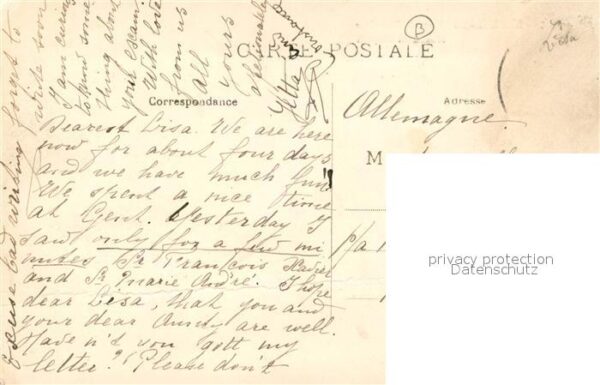 CARTE POSTALE
B
Correspondance
Adresse
Allemagne.
M
p/a
Dearest Lisa. We are here
now for about four days
and we have much fun!!
We spent a nice time
at Gent. Yesterday I
saw only for a few mi
nutes Sr François Xavier
and Sr Marie André. I hope
dear Lisa, that you and
your dear Aunty are well.
Have n't you gott my
letter? Please don't
forget to
write soon
I am curious
to hend some
thing about
your exam.
With love
from us
all
yours
affectionately
Etta
Excuse bad writing
privacy protection
Datenschutz